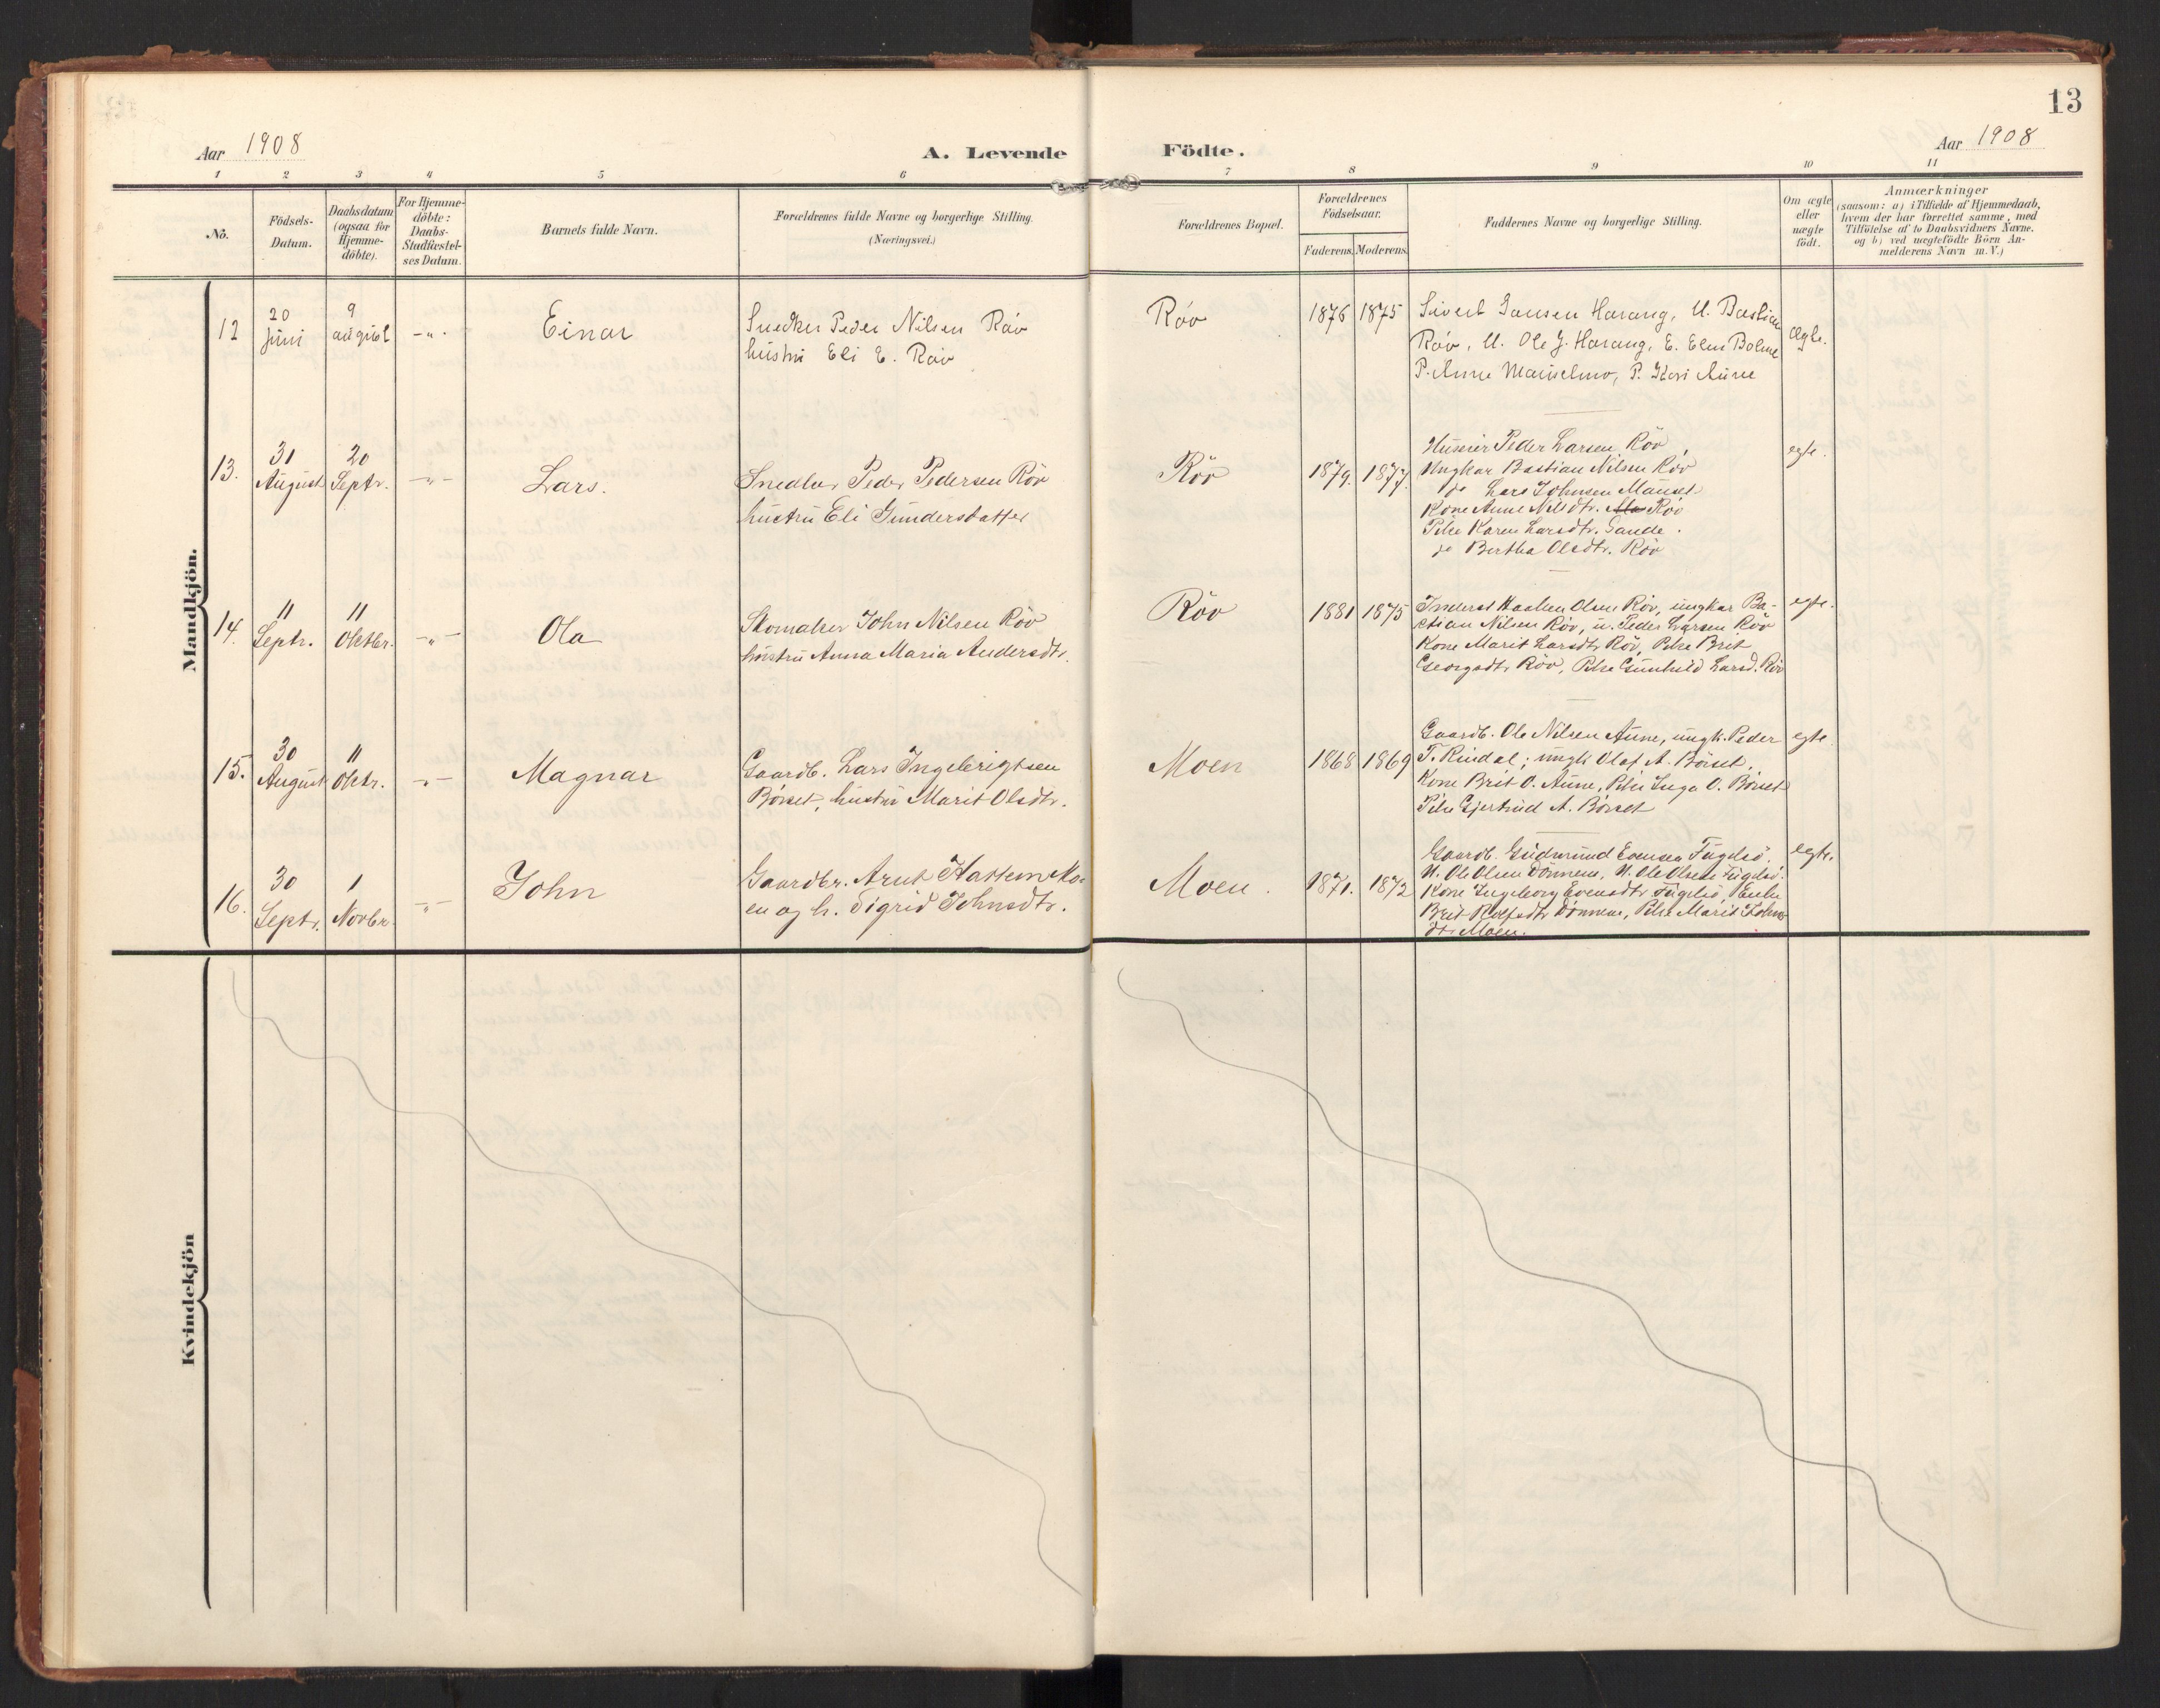 13
Aar 1908
A. Levende
Födte.
Aar 1908
1 2 3 4 5 6 7 8 9 10 11
No.
Födsels-
Datum.
Daabsdatum
(ogsaa for
Hjemme-
döbte).
For Hjemme-
döbte:
Daabs-
Stadfæstel-
ses Datum.
Barnets fulde Navn.
Forældrenes fulde Navne og borgerlige Stilling.
(Næringsvei.)
Forældrenes Bopæl.
Forældrenes
Födselsaar.
Faderens. Moderens.
Faddernes Navne og borgerlige Stilling.
Om ægte
eller
uægte
födt.
Anmærkninger
(saasom: a) i Tilfælde af Hjemmedaab,
hvem der har forrettet samme, med
Tilföielse af to Daabsvidners Navne.
og b) ved uægtefödte Börn An-
melderens Navn m. V.)
Mandkjön.
12
20
Juni
9
august
-"-
Einar
Snedker Peder Nilsen Röv
hustru Eli E. Röv
Röv
1876 1875
Sivert Jansen Harang, U. Bastian
Röv, U. Ole J. Harang, E. Elen Bolme
P. Anne P. Kari Aune
Ægte.
13.
31
August
20
Septr.
-"-
Lars.
Peder Pedersen Röv
hustru Eli Gundersdatter
Röv
1879. 1877.
Peder Larsen Röv,
Ungkar Bastian Nilsen Röv
do Lars Johnsen
Kone Anne Nilsdtr. Röv
Pike Karen Larsdtr. Sande.
do Bertha Olsdtr. Röv
egte.
14.
11
Septr.
11
Oktbr.
-"-
Ola
Skomaker John Nilsen Röv
hustru Anna Maria Andersdtr.
Röv
1881 1875
Inderst Haaken Olsen Röv, ungkar Ba-
stian Nilsen Röv, u. Peder Larsen Röv
Kone Marit Larsdtr Röv, Pike Brit
Georgsdtr Röv, Pike Gunhild Larsd. Röv
egte.
15.
30
August
11
Oktr.
-"-
Magnar
Gaardb. Lars Ingebrigtsen
Börset, hustru Marit Olsdtr.
Moen
1868 1869
Gaardb. Ole Nilsen Aune, ungk. Peder
T. Rindal; ungk Olaf A. Börset,
Kone Brit O. Aune, Pike Inga O. Börset
Pike Gjertrud A. Börset
egte
16.
30
Septr.
1
Novbr.
-"-
John
Gaardbr. Arnt Halsem Mo-
en og h. Sigrid Johnsdtr.
Moen.
1871. 1872
Gaardb. Gudmund Evensen Fugelsö.
U. Ole Olsen Dönnem, U. Ole Olsen Fugelsö
Kone Ingeborg Evensdtr Fugelsö, Enke
Brit Dönnem, Pike Marit Johns-
dtr Moen.
egte.
Kvindekjön